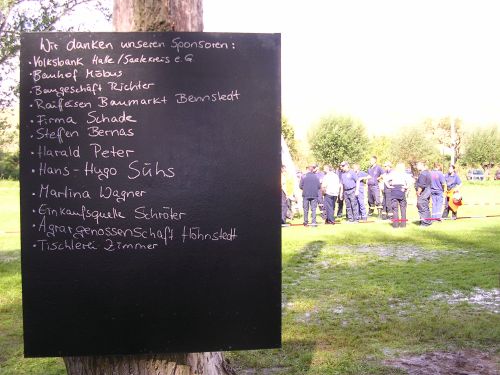 Wir danken unseren Sponsoren:
• Volksbank Halle/Saalekreis e.G
• Bauhof Möbus
• Baugeschäft Richter
• Raiffeisen Baumarkt Bennstedt
• Firma Schade
• Steffen Bernas
• Harald Peter
• Hans-Hugo Sühs
• Martina Wagner
• Einkaufsquelle Schröter
• Agrargenossenschaft Höhnstedt
• Tischlerei Zimmer